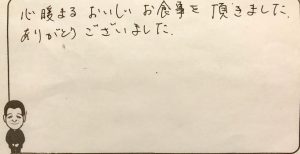 心暖まる おいしい お食事を 頂きました.
ありがとうございました.